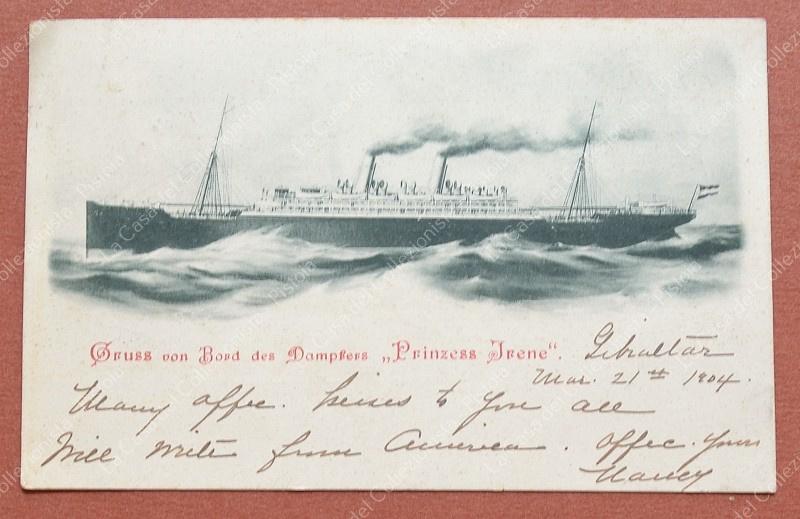 Gruss von Bord des Dampfers „Prinzess Irene“.
Gibraltar
Mar. 21st 1904.
Many affec. kisses to you all
Will write from America. Affec. yours
Nancy
La Casa del Collezionista - Pistoia